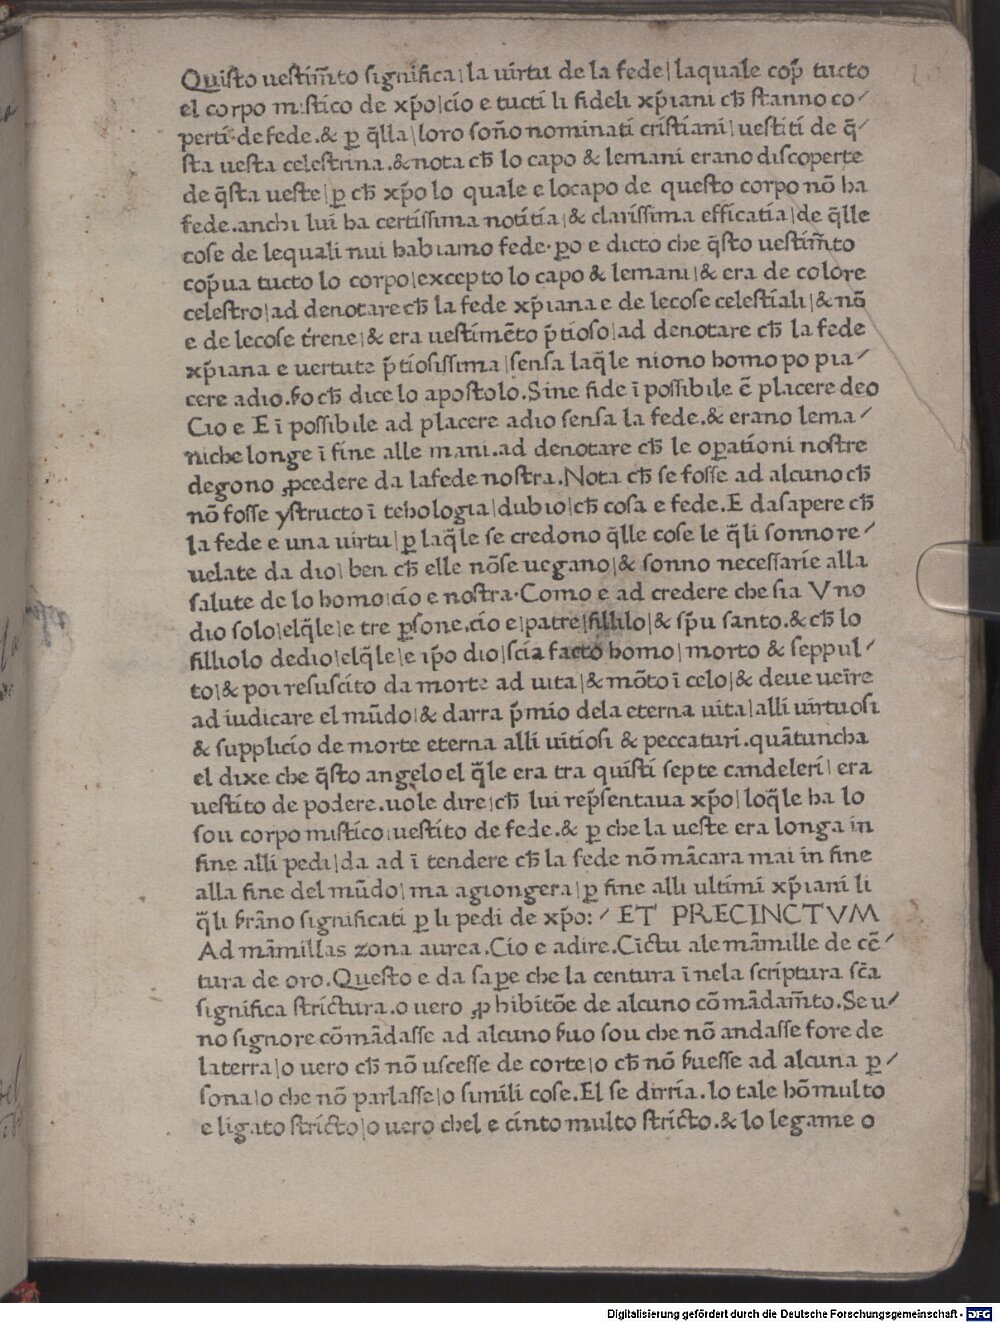 Quisto uestim̄to significa|la uirtu de la fede|laquale cop̄ tucto
el corpo mistico de xp̄o|cio e tucti li fideli xp̄iani cħ stanno co⸗
perti de fede.& ꝑ q̄lla|loro soño nominati cristiani|uestiti de q̄⸗
sta uesta celestrina.& nota cħ lo capo & lemani erano discoperte
de q̄sta ueste|ꝑ cħ xp̄o lo quale e locapo de questo corpo nō ha
fede.anchi lui ha certissima notitia|& clarissima efficatia|de q̄lle
cose de lequali nui habiamo fede.ꝑo e dicto che q̄sto uestim̄to
cop̄ua tucto lo corpo|excepto lo capo & lemani|& era de colore
celestro|ad denotare cħ la fede xp̄iana e de lecose celestiali|& nō
e de lecose t̄rene|& era uestimēto p̄tioso|ad denotare cħ la fede
xp̄iana e uertute p̄tiosissima|sensa laq̄le niono homo po pia⸗
cere adio.ꝑo cħ dice lo apostolo.Sine fide ī possibile ē placere deo
Cio e E ī possibile ad placere adio sensa la fede.& erano lema⸗
niche longe ī fine alle mani.ad denotare cħ le oꝑationi nostre
degono ꝓcedere da lafede nostra.Nota cħ se fosse ad alcuno cħ
nō fosse ystructo ī tehologia|dubio|cħ cosa e fede.E dasapere cħ
la fede e una uirtu|ꝑ laq̄le se credono q̄lle cose le q̄li sonno re⸗
uelate da dio|ben cħ elle nōse uegano|& sonno necessarie alla
salute de lo homo|cio e nostra.Como e ad credere che sia Vno
dio solo|elq̄le|e tre ꝑsone.cio e|patre|fillilo|& sp̄u santo.& cħ lo
filliolo dedio|elq̄le|e ip̄o dio|scia facto homo|morto & seppul⸗
to|& poi resuscito da morte ad uita|& mōto ī celo|& deue ueīre
ad iudicare el mūdo|& darra p̄mio dela eterna uita|alli uirtuosi
& supplicio de morte eterna alli uitiosi & peccaturi.quātuncha
el dixe che q̄sto angelo el q̄le era tra quisti septe candeleri|era
uestito de podere.uole dire|cħ lui rep̄sentaua xp̄o|loq̄le ha lo
sou corpo mistico|uestito de fede.& ꝑ che la ueste era longa in
fine alli pedi|da ad ī tendere cħ la fede nō mācara mai in fine
alla fine del mūdo|ma agiongera|ꝑ fine alli ultimi xp̄iani li
q̄li ẜrāno significati ꝑ li pedi de xp̄o:⸗ ET PRECINCTVM
Ad māmillas zona aurea.Cio e adire.Cīctu ale māmille de cē⸗
tura de oro.Questo e da saꝑe che la centura ī nela scriptura sc̄a
significa strictura.o uero ꝓhibitōe de alcuno cōmādam̄to.Se u⸗
no signore cōmādasse ad alcuno ẜuo sou che nō andasse fore de
laterra|o uero cħ nō uscesse de corte|o cħ nō ẜuesse ad alcuna ꝑ⸗
sona|o che nō parlasse|o simili cose.El se dirria.lo tale hō multo
e ligato stricto|o uero chel e cinto multo stricto.& lo legame o
Digitalisierung gefördert durch die Deutsche Forschungsgemeinschaft - DFG